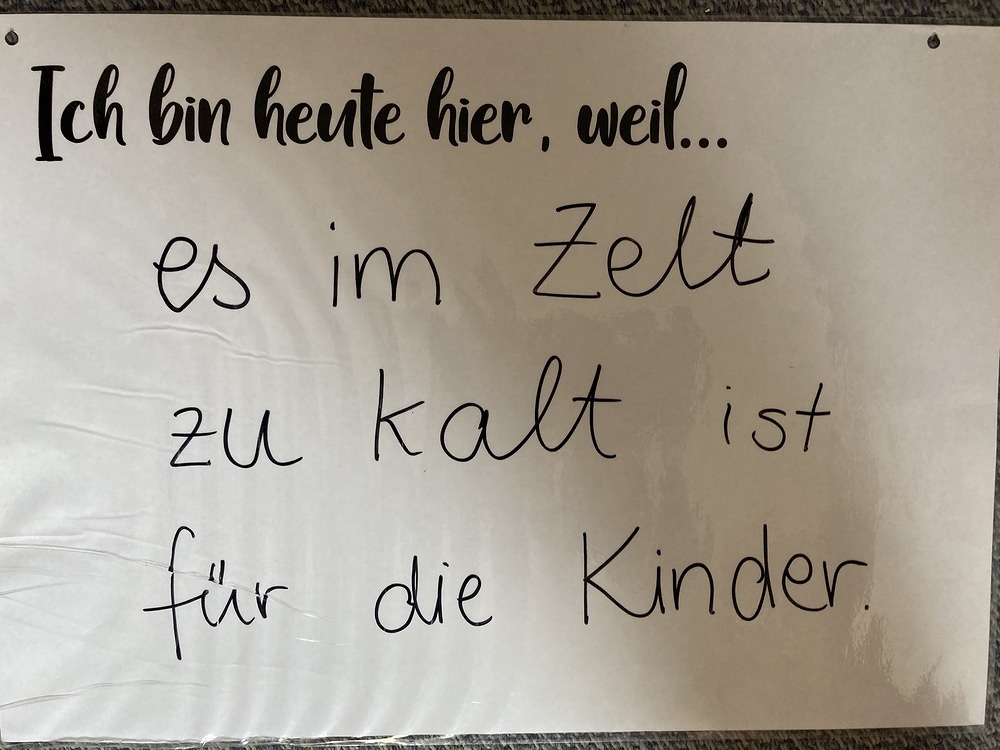 Ich bin heute hier, weil...
es im Zelt
zu kalt ist
für die Kinder.